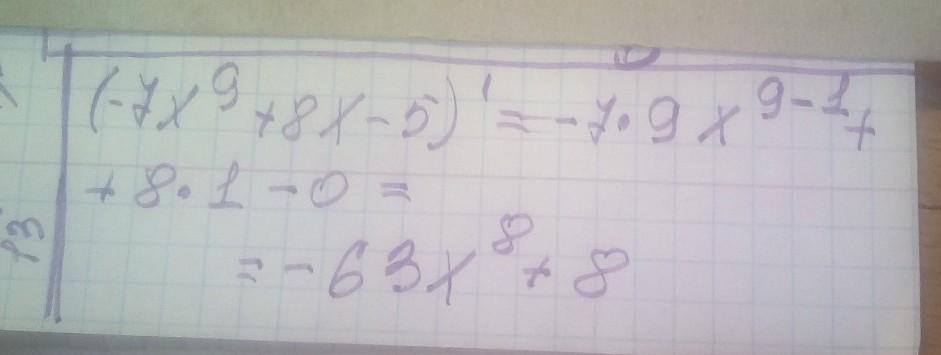 (-7x⁹+8x-5)'=-7·9x⁹⁻¹+
+8·1-0=
=-63x⁸+8